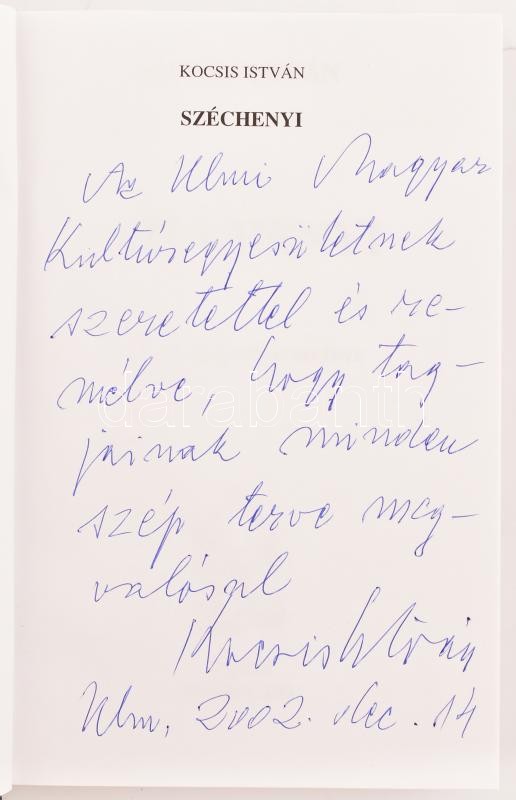 KOCSIS ISTVÁN
SZÉCHENYI
Az Ulmi Magyar
Kultúregyesületnek
szeretettel és re-
mélve, hogy tag-
jainak minden
szép terve meg-
valósul
Kocsis István
Ulm, 2002. dec. 14
darabanth